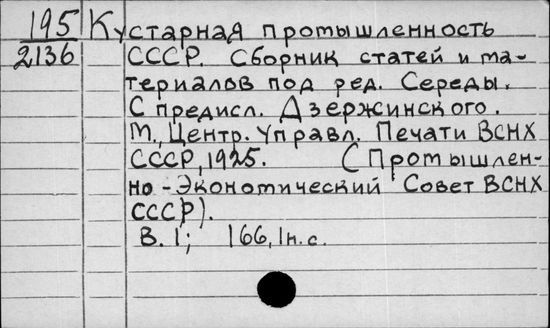 195 Кустарная промышленность
2136 СССР. Сборник статей и ма-
териалов под ред. Середы.
С предисл. Дзержинского.
М., Центр. Управл. Печати ВСНХ
СССР, 1925. (Промышлен-
но-Экономический Совет ВСНХ
СССР).
В. 1; 166, 1н.с.